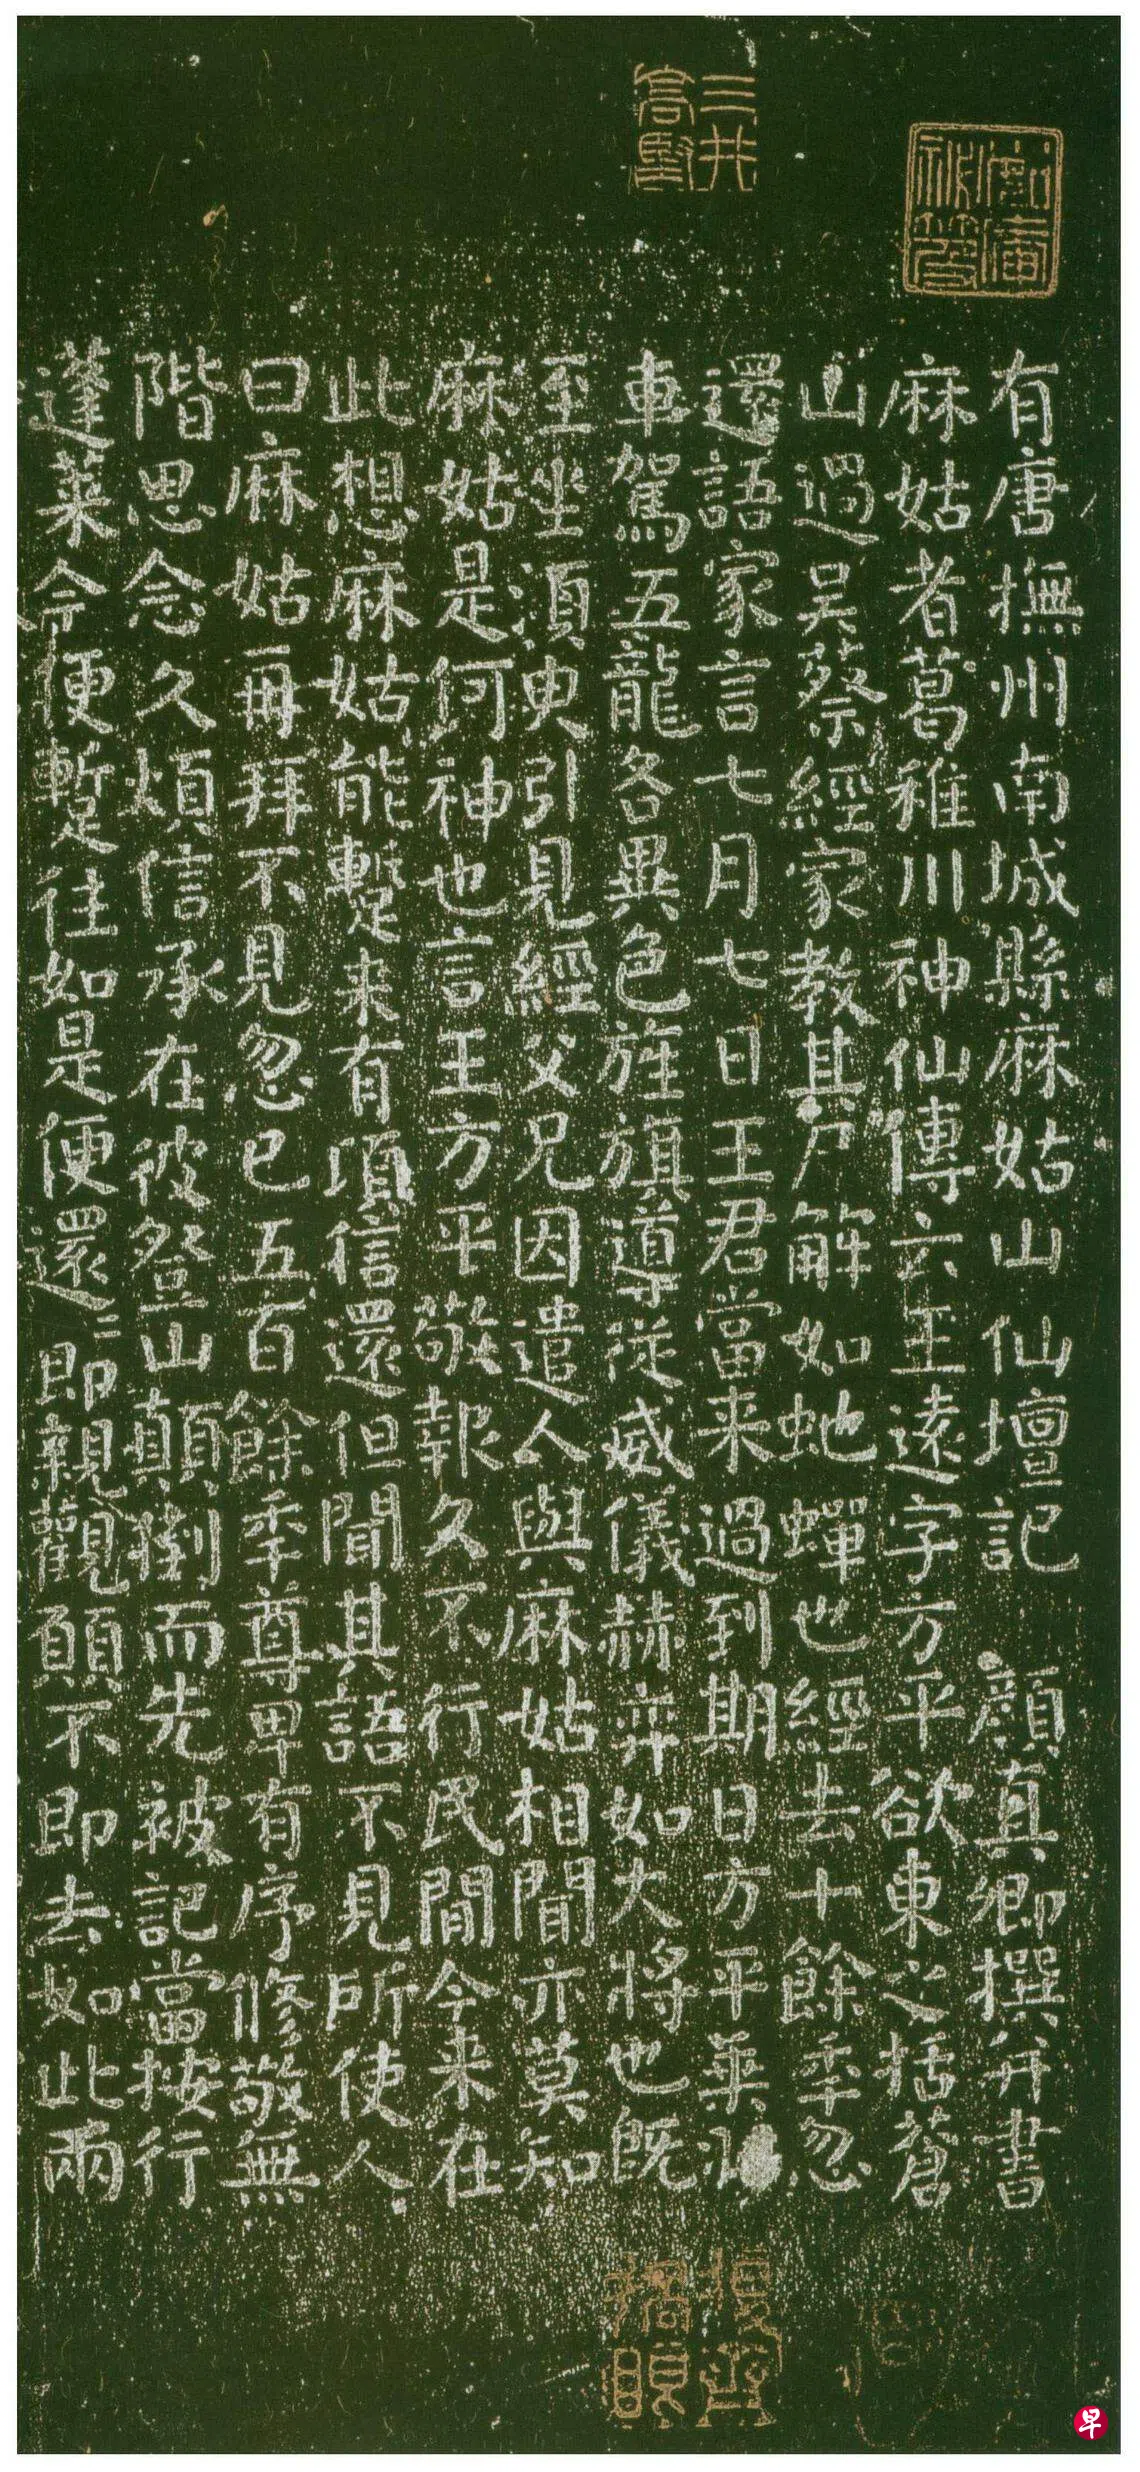 有唐撫州南城縣麻姑山仙壇記 顏真卿撰并書
麻姑者葛稚川神仙傳云王遠字方平欲東之括蒼
山過吳蔡經家教其尸解如虵蟬也經去十餘年忽
還語家言七月七日王君當来過到期日方平乗
車駕五龍各異色旌旗導従威儀赫弈如大將也既
至坐須臾引見經父兄因遣人與麻姑相聞亦莫知
麻姑是何神也言王方平敬報久不行民間今来在
此想麻姑能蹔来有頃信還但聞其語不見所使人
曰麻姑再拜不見忽已五百餘年尊卑有序修敬無
階思念久煩信承在彼登山顛倒而先被記當按行
蓬萊今便蹔往如是便還還即親觀願不即去如此兩
三井高堅
早